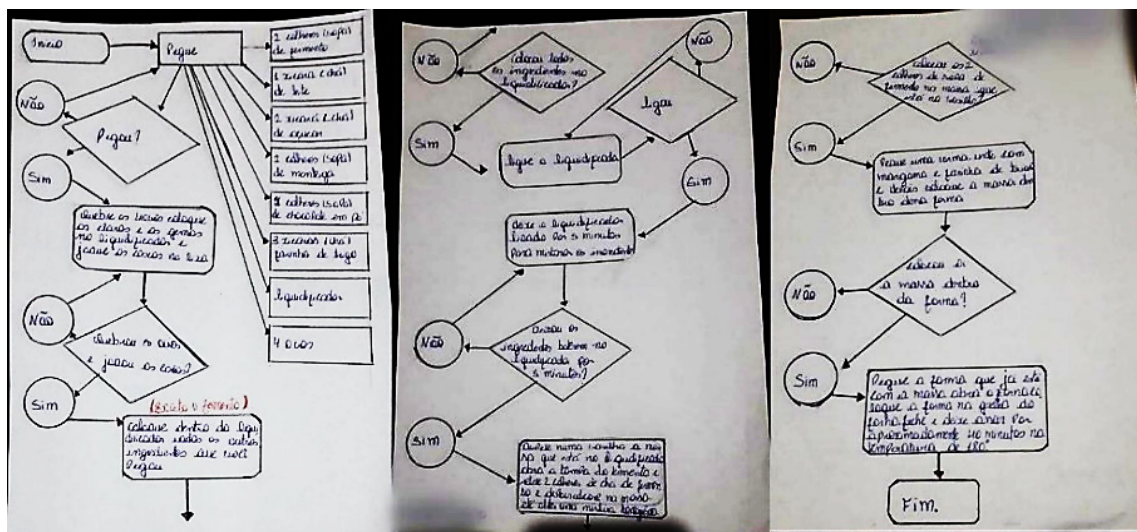 Início
Pegue
2 colheres (sopa)
de fermento
1 xícara (chá)
de leite
2 xícara (chá)
de açúcar
2 colheres (sopa)
de manteiga
colheres (sopa)
de chocolate em pó
3 xícaras (chá)
farinha de trigo
liquidificador
4 ovos
Não
Pegou?
Sim
Quebre os ovos coloque
as claras e as gemas
no liquidificador e
jogue as cascas no lixo
Não
Quebrou os ovos
e jogou as cascas?
Sim
(Exceto o fermento)
coloque dentro do liqui
dificador todos os outros
ingredientes que você
Pegou
Não
Colocou todos
os ingredientes no
liquidificador?
Sim
ligue o liquidificado
Não
ligou
Sim
deixe o liquidificador
ligado por 5 minutos
para misturar os ingredientes
Não
os
ingredientes baterem no
liquidificado por
5 minutos?
Sim
numa vasilha a
que está no liquidificado
abra a tampa do fermento e
2 colheres de chá de
e na massa
Não
colocou os 2
colheres de
fermento na massa que
está na vasilha?
Sim
Pegue uma forma unte com
e farinha de trigo
e depois coloque a massa den
tro dona forma
Não
colocou
a massa dentro
da forma?
Sim
Pegue a forma que já está
com a massa abra o
a forma na do
e deixe assar Por
aproximadamente 40 minutos na
temperatura de 180°
Fim.